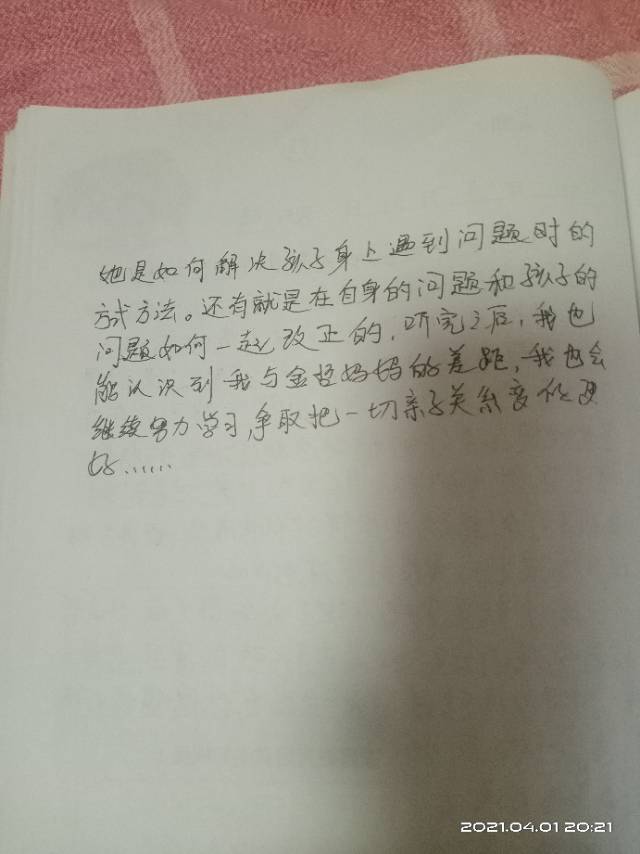 她是如何解决孩子身上遇到问题时的
方式方法。还有就是在自身的问题和孩子的
问题如何一起改正的，听完之后，我也
能认识到我与金妈妈的差距，我也会
继续努力学习，争取把一切亲子关系变化更
好……
2021.04.01 20:21